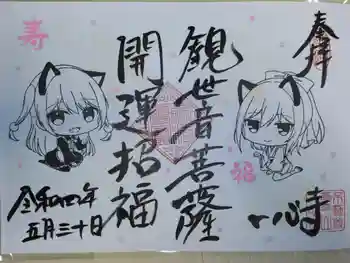 奉拝
観世音菩薩
開運招福
寿
福
令和四年
五月三十日
一心寺